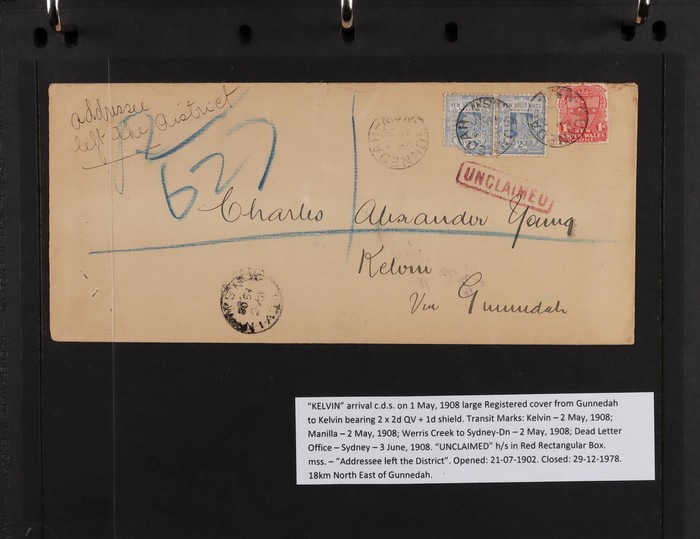 Addressee
left the District
R
627
GUNNEDAH
NEW SOUTH WALES
WALES
UNCLAIMED
Charles Alexander Young
Kelvin
Via Gunnedah
KELVIN
N.S.W
"KELVIN" arrival c.d.s. on 1 May, 1908 large Registered cover from Gunnedah
to Kelvin bearing 2 x 2d QV + 1d shield. Transit Marks: Kelvin – 2 May, 1908;
Manilla – 2 May, 1908; Werris Creek to Sydney-Dn – 2 May, 1908; Dead Letter
Office – Sydney – 3 June, 1908. "UNCLAIMED" h/s in Red Rectangular Box.
mss. – "Addressee left the District". Opened: 21-07-1902. Closed: 29-12-1978.
18km North East of Gunnedah.